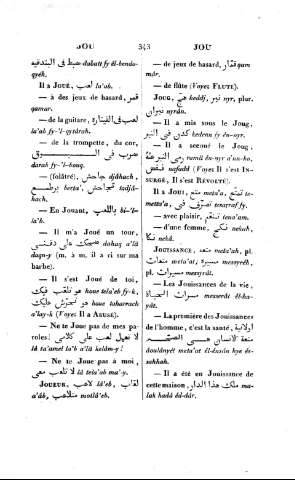 JOU
343
JOU
ضبط فى البندقيه dabatt fy êl-bondo-
qyéh.
Il a JOUÉ, لعب la'ab.
— à des jeux de hasard, قمر
qamar.
— de la guitare, لعب فى القيتارة
la'ab fy-'l-qytârah.
— de la trompette, du cor,
ضرب فى البوق
darab fy-'l-bouq.
— (folâtré), جاحش djâhach,
hach.
— En Jouant, باللعب bi-'l-
la'b.
— Il m'a Joué un tour,
ضحك على دقنى dahaq a'lä
daqn-y (m. à m. il a ri sur ma
barbe).
— Il s'est Joué de toi,
هو لعب فيك houe tela'eb fy-k,
houe taharrach
a'lay-k (Voyez Il a ABUSÉ).
— Ne te Joue pas de mes pa-
roles! لا تعمل لعب على كلامى
lâ ta'amel la'b a'lä kelâm-y!
— Ne te Joue pas à moi,
لا تلعب معى lâ tela'ab ma'-y.
JOUEUR, لعاب la'éb,
a'âb, متلاعب motlâ'eb.
— de jeux de hasard, قمار qam
mâr.
— de flûte (Voyez FLUTE).
JOUG, keddj, نير nyr, plur.
نيران nyrân.
— Il a mis sous le Joug,
كدن فى النير keden fy ên-nyr.
— Il a secoué le Joug,
رمى النير عنه ramä ên-nyr a'n-ho,
نفض nafadd (Voyez Il s'est IN-
SURGÉ, Il s'est RÉVOLTÉ).
Il a JOUI, متع meta'a, تمتع te-
metta'a, تصرف فى tesarraf fy.
— avec plaisir, تنعم tena'am.
— d'une femme, نكح nekah,
ناك nekâ.
JOUISSANCE, متعه meta'ah, pl.
متعات meta'ât, مسيرة messyréh,
pl. مسيرات messyrât.
— Les Jouissances de la vie,
مسرات الحياة messerât êl-ha-
yât.
— La première des Jouissances
de l'homme, c'est la santé, الاولانية
متعة الانسان هى الصحه
doulânyét meta'at êl-ênsân hye ês-
sahhah.
— Il a été en Jouissance de
cette maison, ملك هذا الدار ma-
lak hadâ êd-dâr.